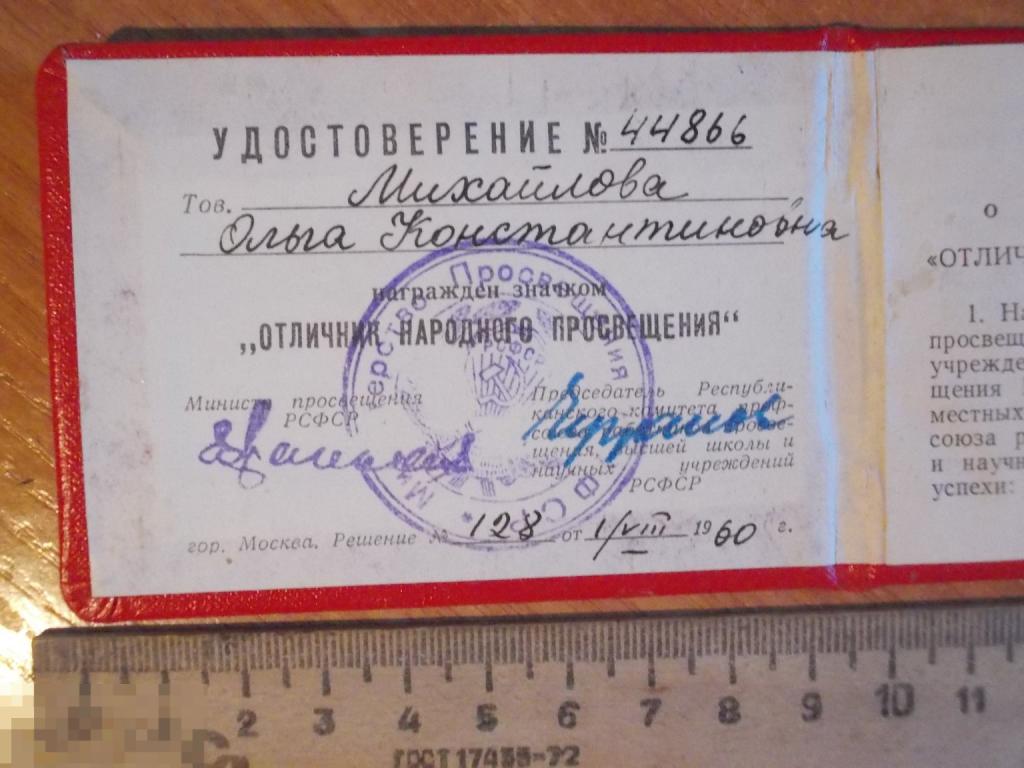 УДОСТОВЕРЕНИЕ № 44866
Тов. Михайлова
Ольга Константиновна
награжден значком
„ОТЛИЧНИК НАРОДНОГО ПРОСВЕЩЕНИЯ“
Министр просвещения
РСФСР
Председатель Республи-
канского комитета проф-
союза работников просве-
щения, высшей школы и
научных учреждений
РСФСР
гор. Москва. Решение № 128 от 1/VIII 1960 г.
Министерство Просвещения РСФСР
о
«ОТЛИЧ
1. На
просвещ
учрежде
щения
местных
союза р
и научн
успехи:
2 3 4 5 6 7 8 9 10 11
ГОСТ 17435-72